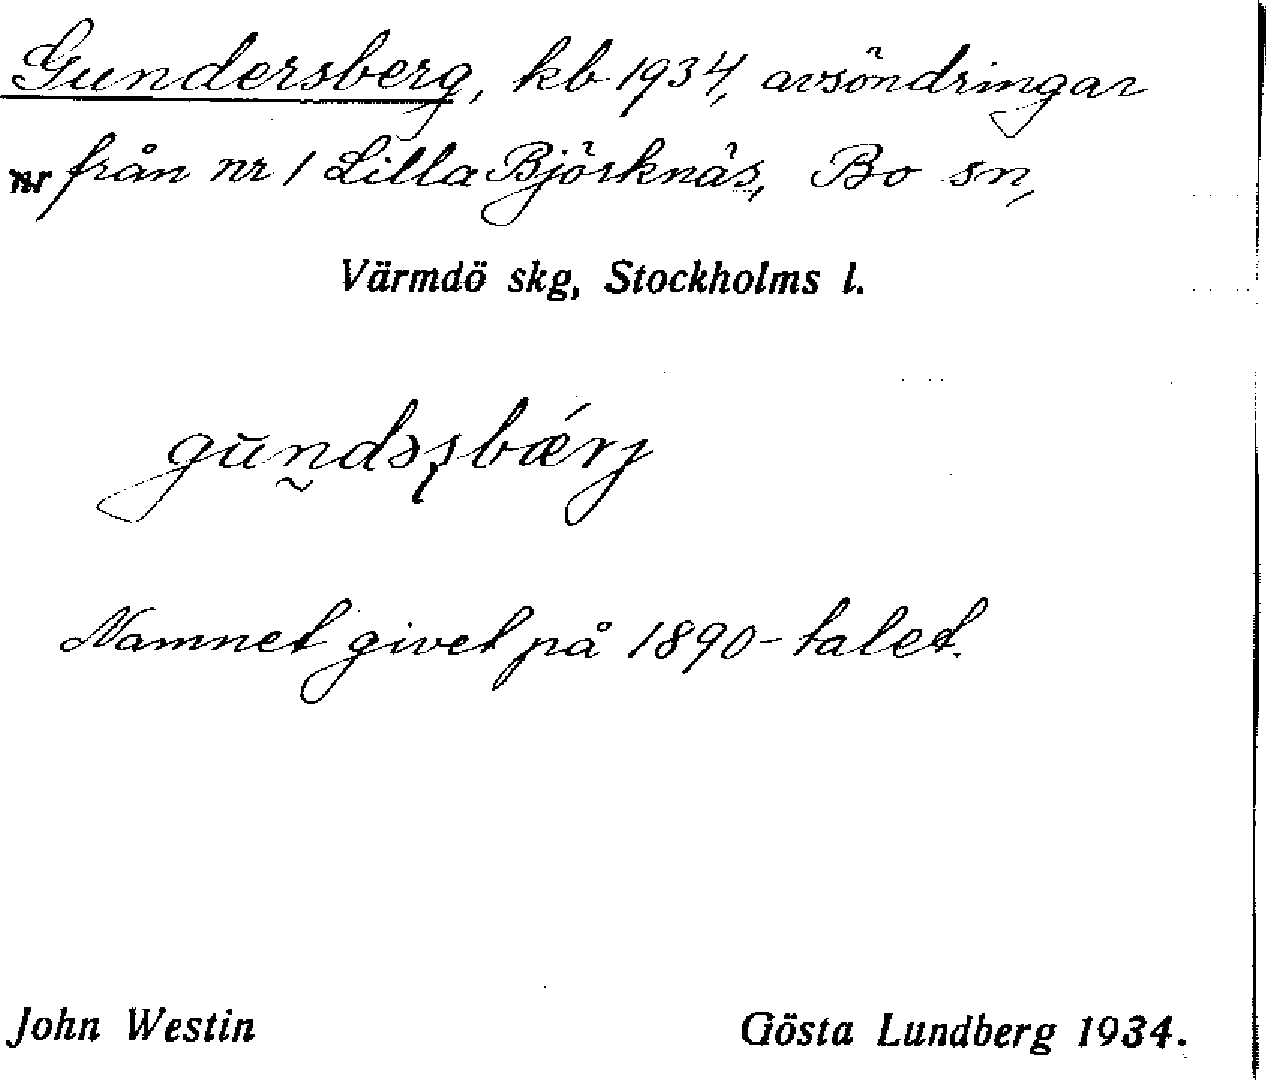 Gundersberg, kb 1934, avsöndringar
nr från nr 1 Lilla Björknäs, Bo sn,
Värmdö skg, Stockholms l.
Namnet givet på 1890-talet.
John Westin
Gösta Lundberg 1934.